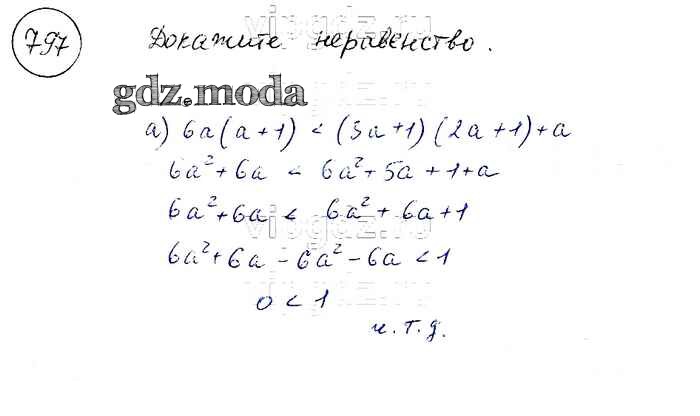 vipgdz.ru
797 Докажите неравенство.
gdz.moda
а) 6a(a+1) < (3a+1)(2a+1)+a
6a²+6a < 6a²+5a+1+a
6a²+6a < 6a²+6a+1
vipgdz.ru
6a²+6a-6a²-6a<1
0<1
ч.т.д.